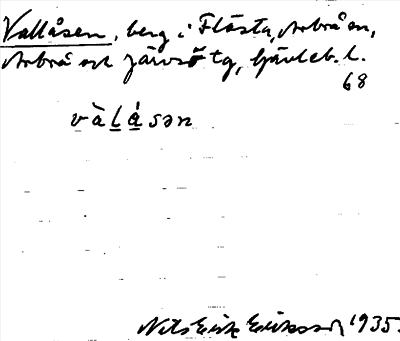 Vallåsen, berg i Flästa, Arbrå sn,
Arbrå och Järvsö tg, Gävleb. l.
68
vàlá̊sən
Nils Erik Eriksson 1935.